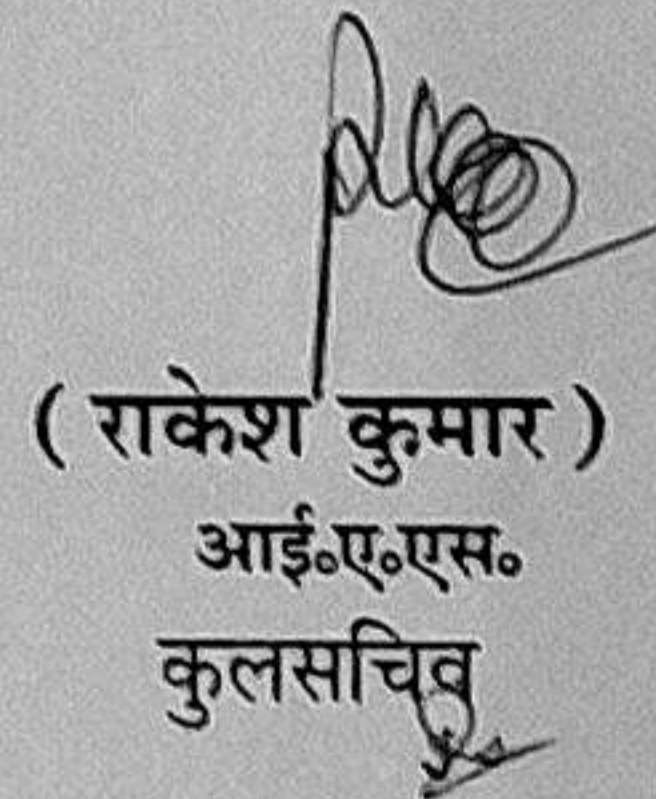 ( राकेश कुमार )
आई॰ए॰एस॰
कुलसचिव